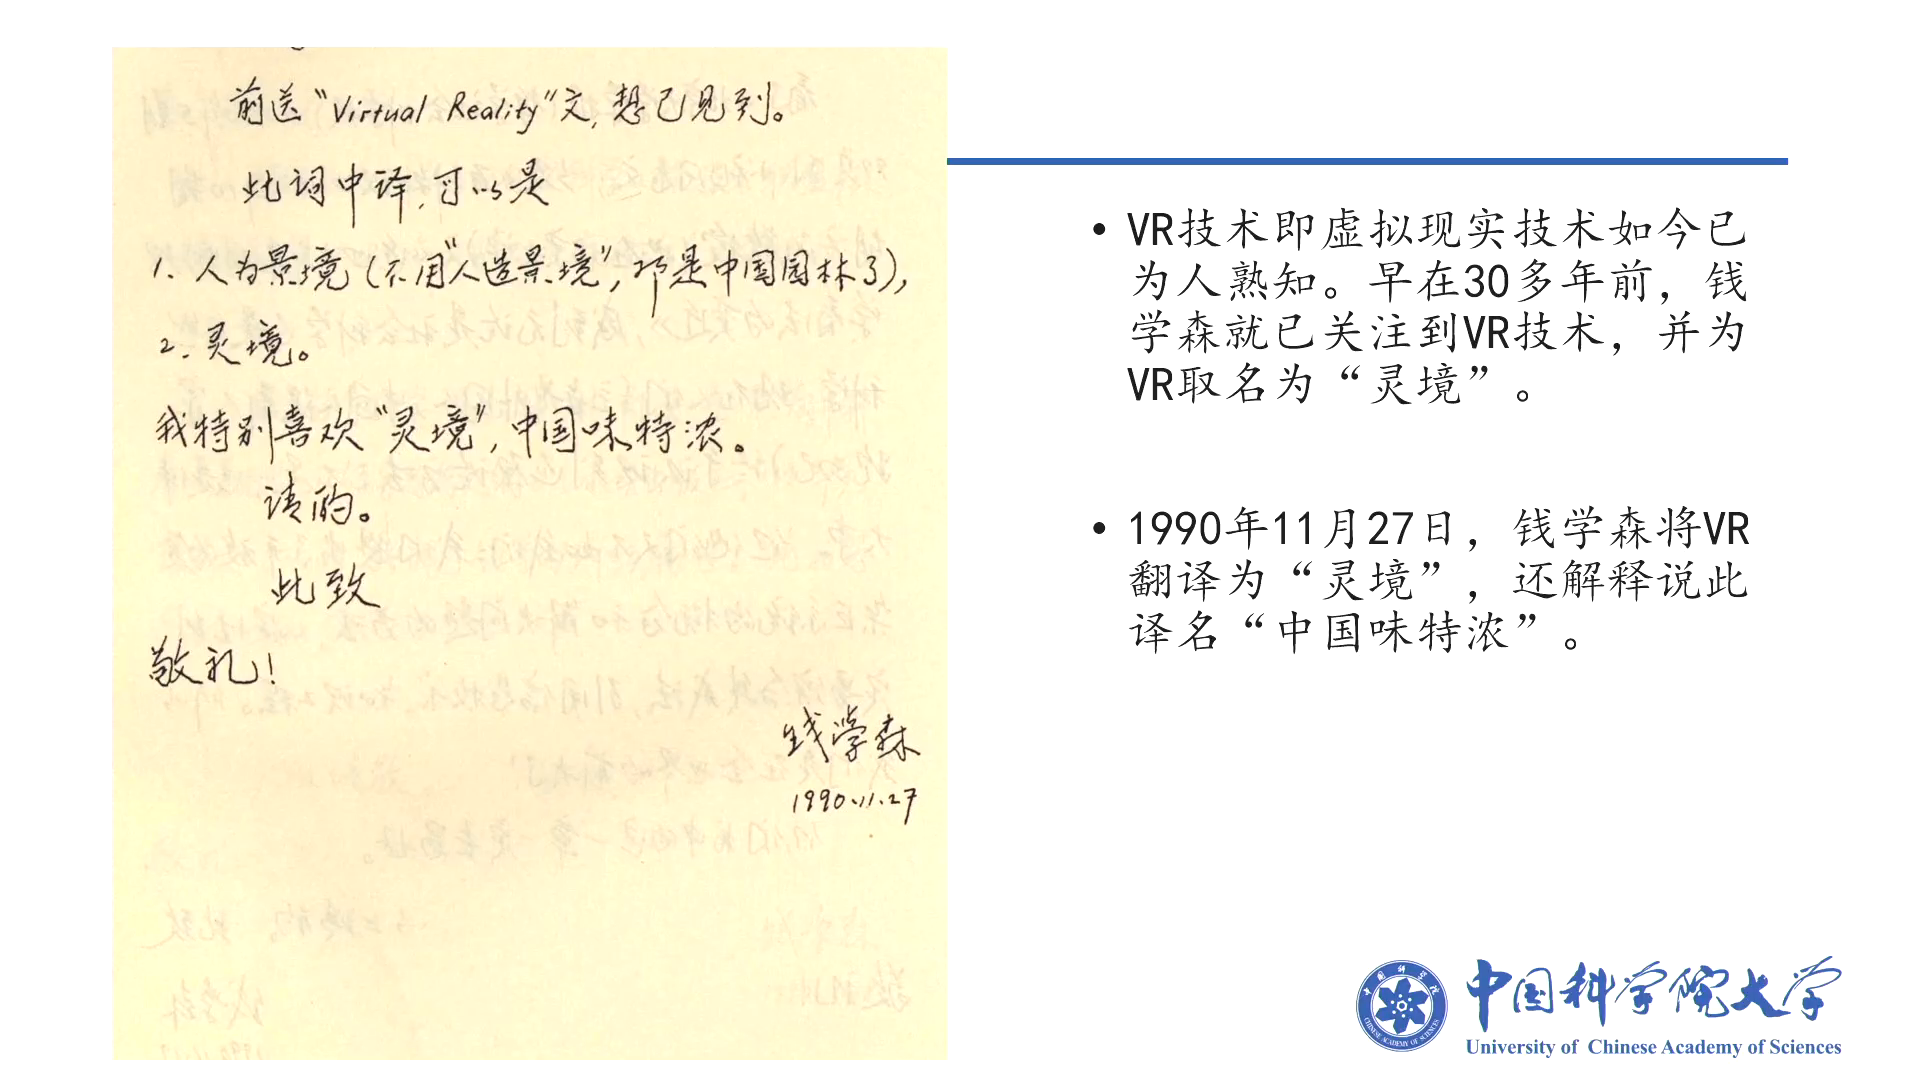 前送“Virtual Reality”文,想已见到。
此词中译,可以是
1. 人为景境(不用“人造景境”,那是中国园林了),
2. 灵境。
我特别喜欢“灵境”,中国味特浓。
请酌。
此致
敬礼!
钱学森
1990.11.27
• VR技术即虚拟现实技术如今已
为人熟知。早在30多年前，钱
学森就已关注到VR技术，并为
VR取名为“灵境”。
• 1990年11月27日，钱学森将VR
翻译为“灵境”，还解释说此
译名“中国味特浓”。
中国科学院大学
University of Chinese Academy of Sciences